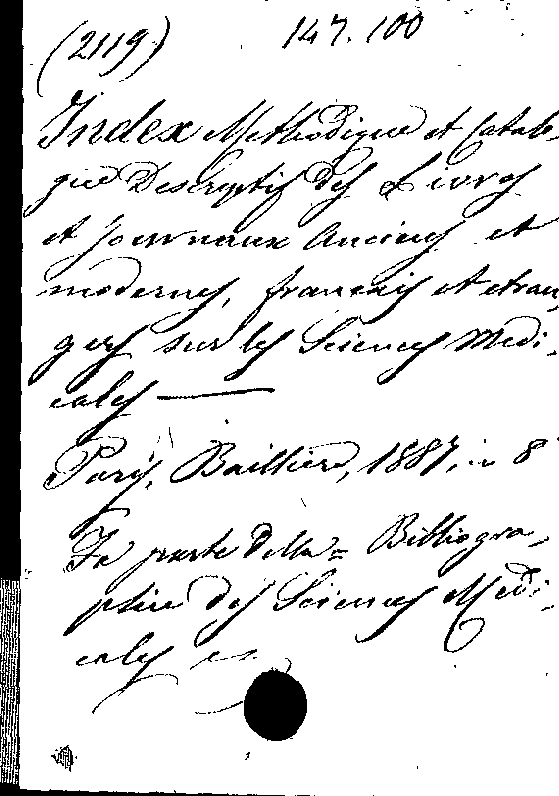 (2119) 147.100
Index Methodique et Catalo-
gue Descriptif des Livres
et Journaux Anciens et
modernes, français et etran,
gers sur les Sciences Medi,
cales —
Paris, Baillière, 1887, in 8°
Fa parte della = Bibliogra,
phie des Sciences Medi,
cales